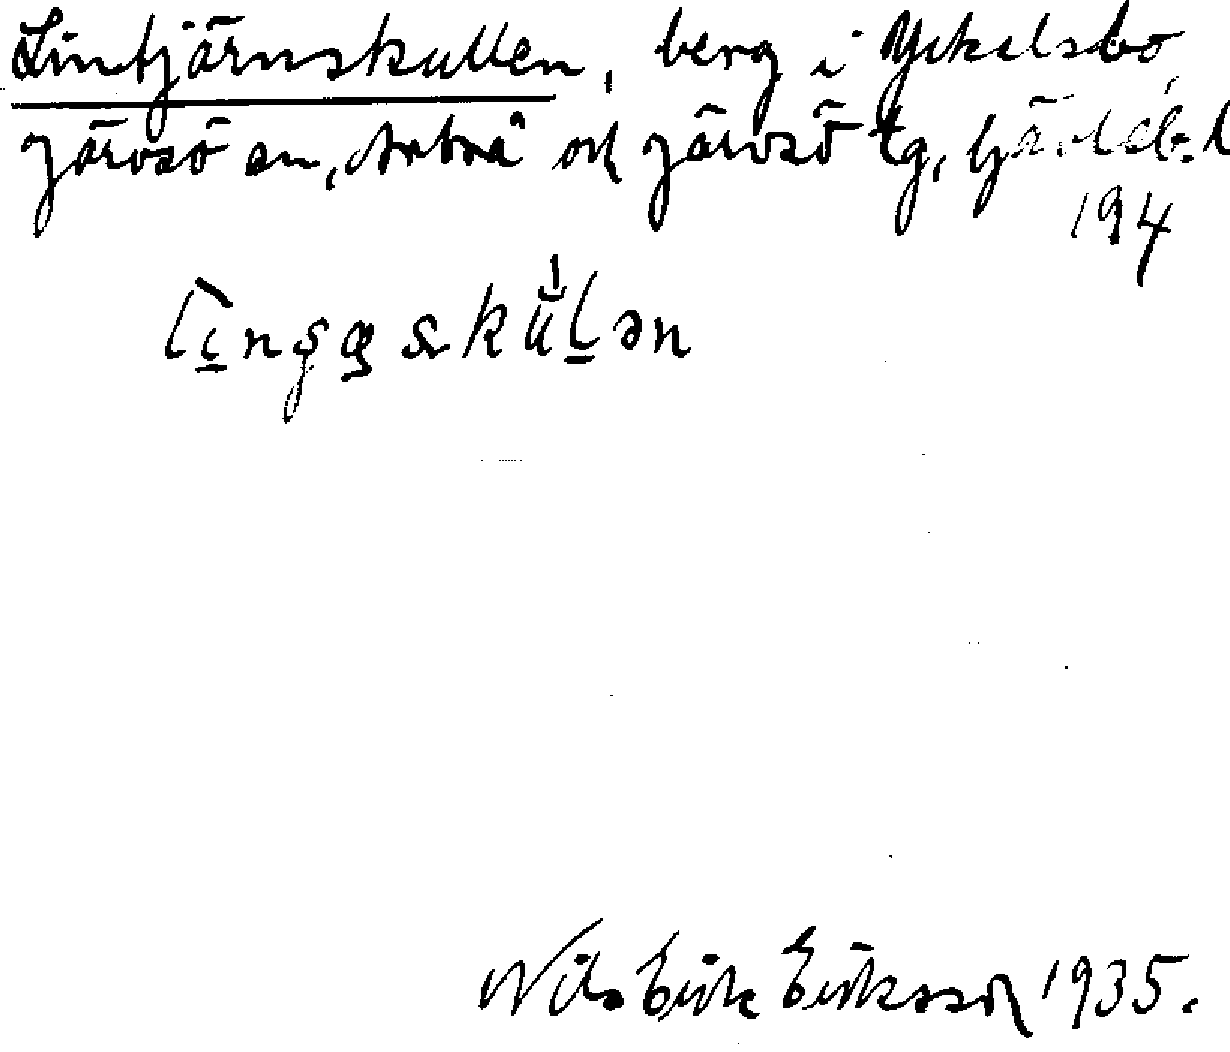 Lintjärnskullen, berg i Yckelsbo,
Järvsö sn, Arbrå och Järvsö tg, Gävlebg. l
194
Nils Eirik Eriksson 1935.